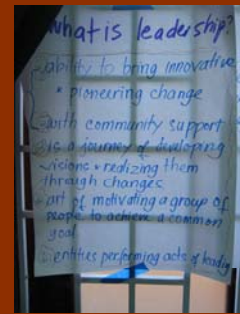 What is leadership?
- ability to bring innovative
* pioneering change
- with community support
- is a journey of developing
visions + realizing them
through changes
- art of motivating a group of
people to achieve a common
goal
entities performing acts of leading